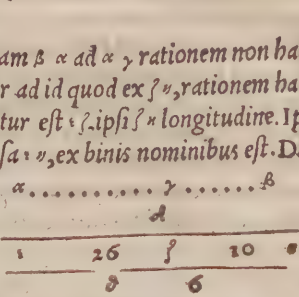 am β α ad α γ rationem non ha
r ad id quod ex ζ η, rationem ha
tur eſt ε ζ. ipſi ζ η longitudine. Ip
ſa ε η, ex binis nominibus eſt. D.
α ......... γ ...... β
δ
ε 26 ζ 10
θ 6